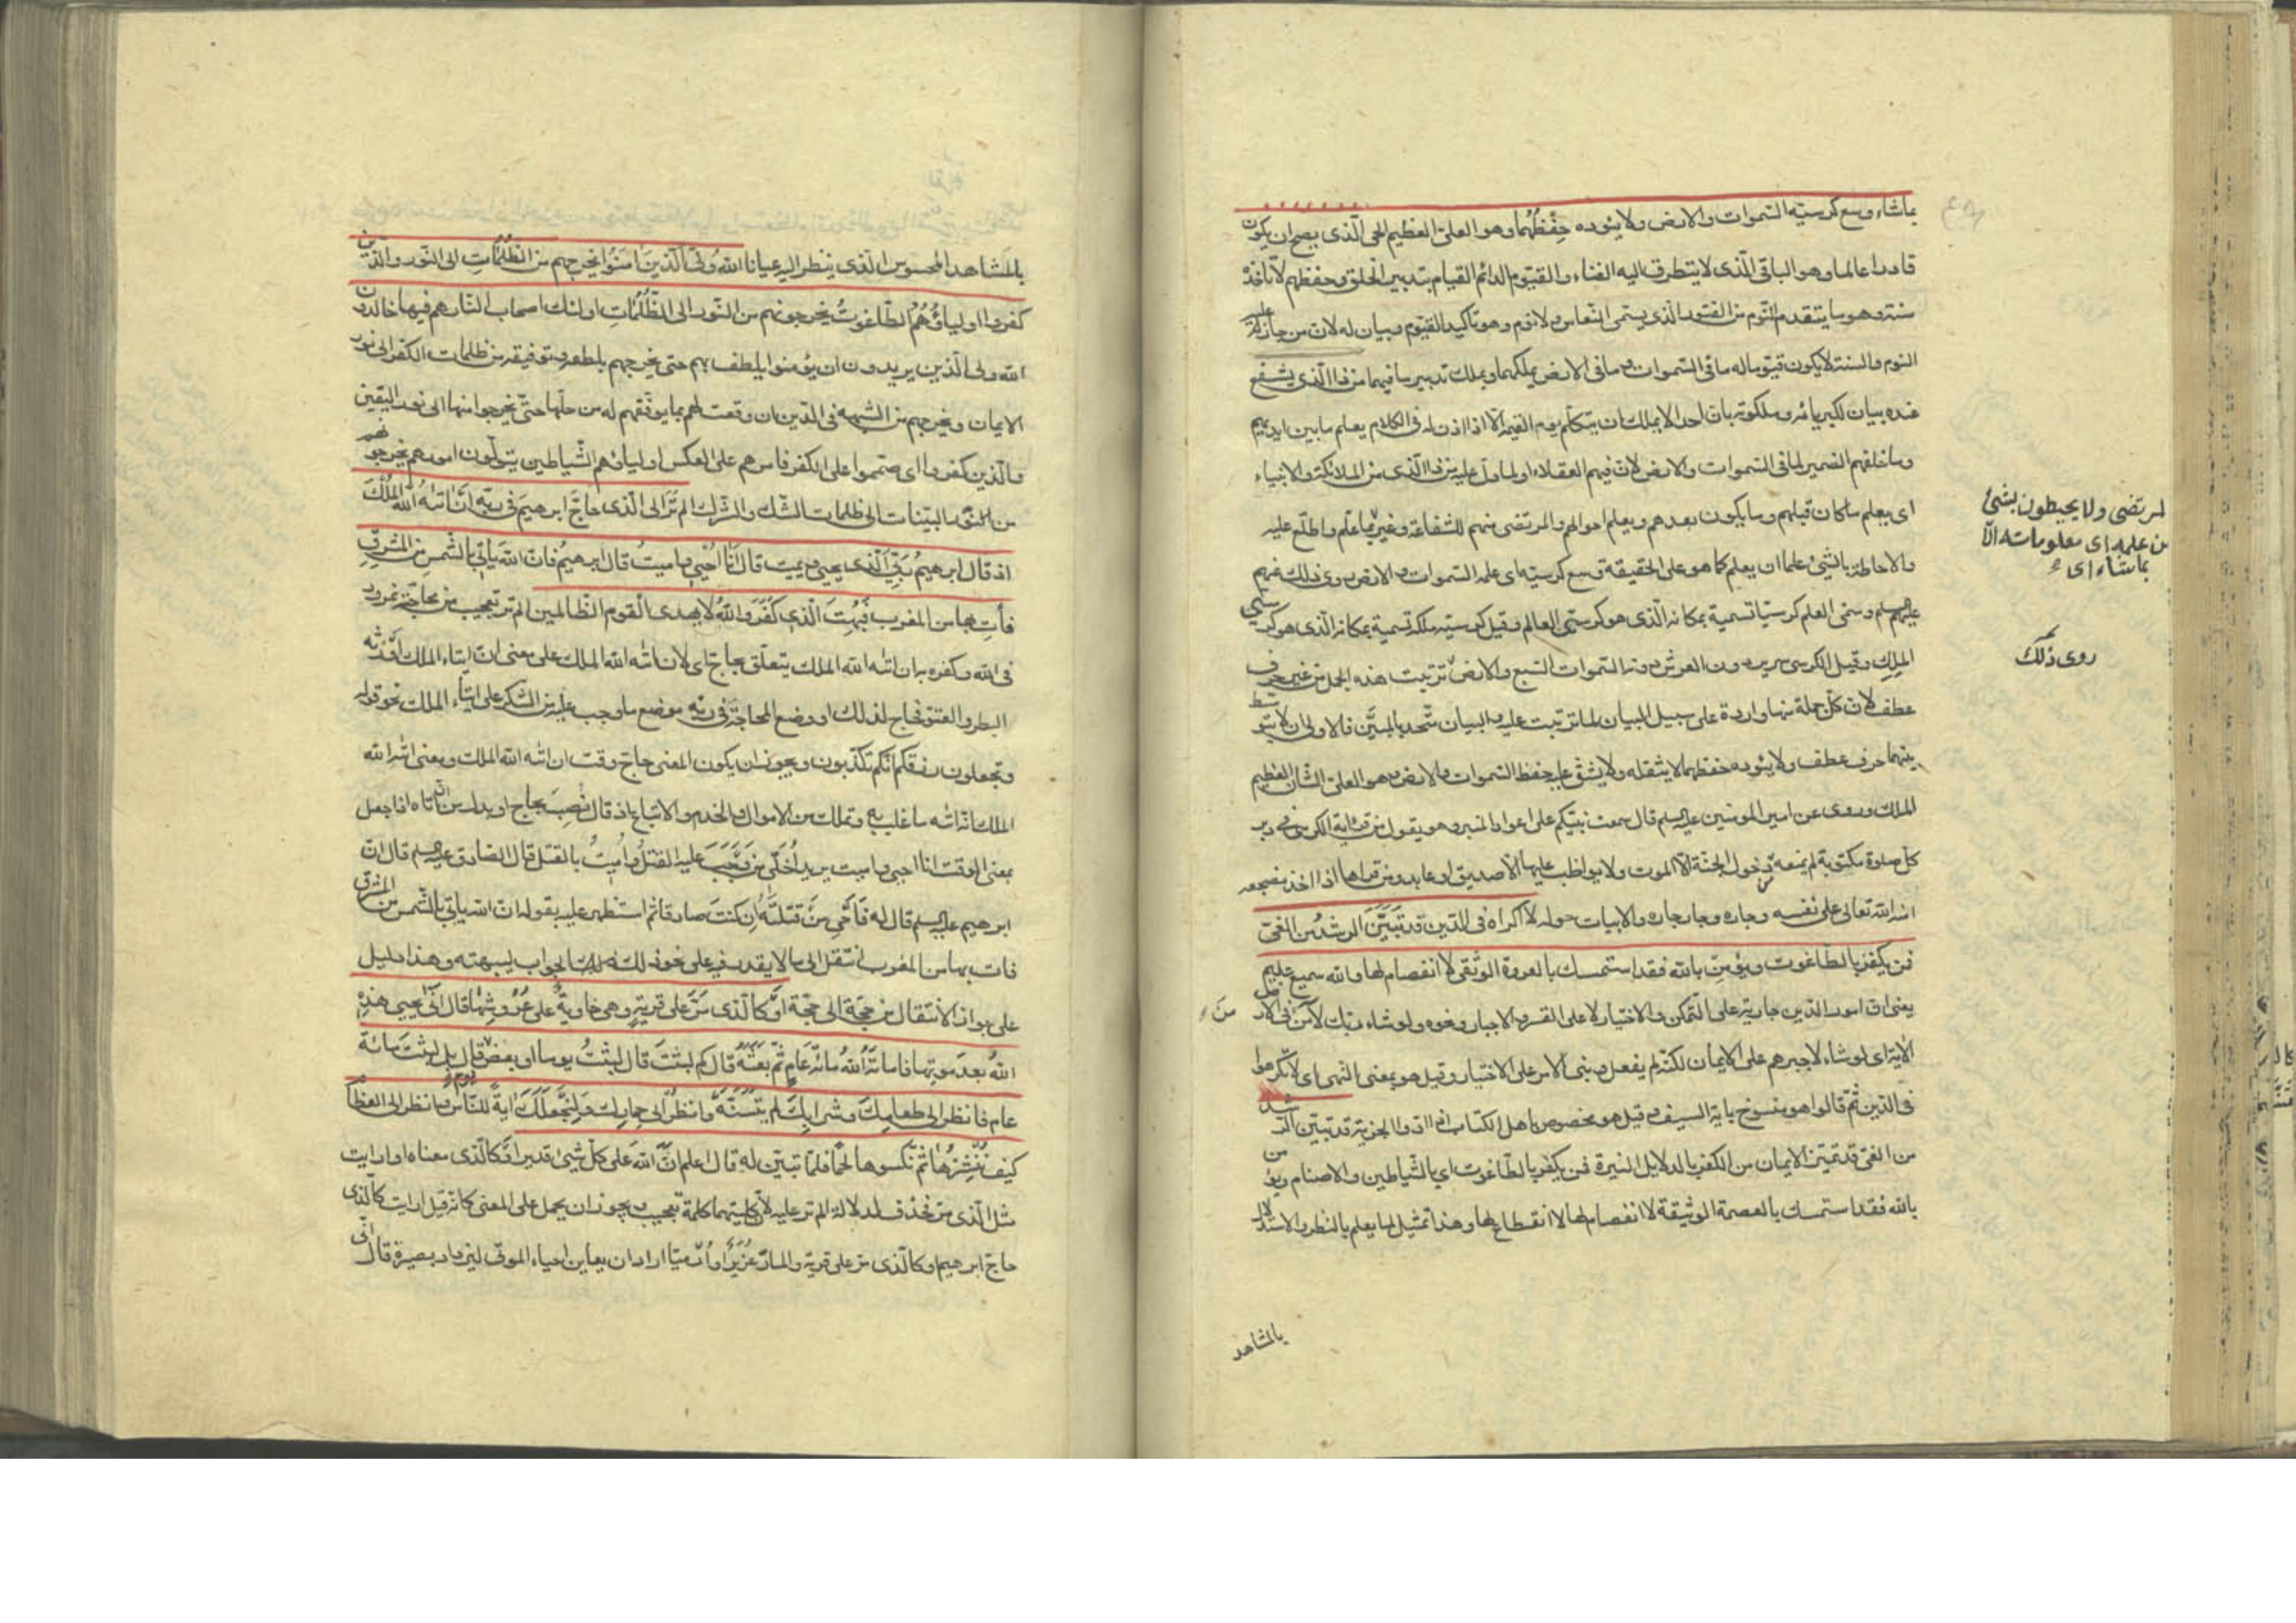 بماشاء وسع كرسيه السموات والارض ولا يئوده حِفْظُهُما وهو العلىّ العظيم الحى الّذى يصح ان يكون
قادرا عالما وهو الباقى الّذى لا يتطرق اليه الفناء والقيّوم الدائم القيام بتدبير الخلق وحفظهم لا تاخذه
سنة وهو ما يتقدم النّوم من الفتور الذى يسمّى النّعاس ولا نوم وهو تاكيد للقيّوم وبيان له لان من جاز عليه
النوم والسنة لا يكون قيّوما له ما فى السّموات وما فى الارض يملكهما ويملك تدبير ما فيهما من ذا الّذى يشفع
عنده بيان لكبريائه وملكوته بان احدا لا يملك ان يتكلّم يوم القيمة الّا اذا اذن له فى الكلام يعلم ما بين ايديهم
وما خلفهم الضمير لما فى السّموات والارض لان فيهم العقلاء او لما دلّ عليه من ذا الذى من الملائكة والانبياء
اى يعلم ما كان قبلهم وما يكون بعدهم ويعلم احوالهم والمرتضى منهم للشفاعة وغير ممّا علم واطلع عليه
والاحاطة بالشئ علما ان يعلم كما هو على الحقيقة وسع كرسيّه اى علمه السّموات والارض روى ذلك عنهم
عليهم السلم وسمّى العلم كرسيّا تسمية بمكانه الّذى هو كرسىّ العالم وقيل كرسيّه ملكه تسمية بمكانه الّذى هو كرسىّ
الملك وقيل الكرسى سرير دون العرش دونه السّموات السّبع والارض ترتبت هذه الجمل من غير حرف
عطف لان كلّ جملة منها واردة على سبيل البيان لما ترتبت عليه والبيان متّحد بالمبيَّن فالاولى ان لا يتوسّط
بينهما حرف عطف ولا يئوده حفظهما لا يثقله ولا يشقّ عليه حفظ السّموات والارض وهو العلىّ الشان العظيم
الملك وروى عن امير المومنين عليه السلم قال سمعت نبيّكم على اعواد المنبر وهو يقول من قرا اية الكرسى فى دبر
كلّ صلوة مكتوبة لم يمنعه من دخول الجنّة الّا الموت ولا يواظب عليها الّا صديق او عابد ومن قراها اذا اخذ مضجعه
امنه الله تعالى على نفسه وجاره وجار جاره والابيات حوله لا اكراه فى الدّين قد تَبَيَّنَ الرشدُ من الغىّ
فمن يكفر بالطّاغوت ويؤمن بالله فقد استمسك بالعروة الوثقى لا انفصام لها والله سميع عليم
يعنى ان امور الدّين جارية على التّمكن والاختيار لا على القسر والاجبار ونحوه ولو شاء ربّك لآمن من فى الارض
الاية اى لو شاء لاجبرهم على الايمان لكنّه لم يفعل وبنى الامر على الاختيار وقيل هو بمعنى النّهى اى لا تكرهوا
فى الدّين ثمّ قالوا هو منسوخ باية السيف وقيل هو مخصوص باهل الكتاب اذا ادّوا الجزية قد تبيّن الرّشد
من الغىّ قد تميّز الايمان من الكفر بالدلايل النيرة فمن يكفر بالطّاغوت اى بالشّياطين والاصنام ويؤمن
بالله فقد استمسك بالعصمة الوثيقة لا انفصام لها لا انقطاع لها وهذا تمثيل لما يعلم بالنظر والاستدلال
لمرتضى ولا يحيطون بشئ
من علمه اى معلوماته الّا
بما شاء اى
روى ذلك
بالمشاهد
بالمشاهد المحسوس الّذى ينظر اليه عيانا اللهُ ولىّ الّذين اٰمَنُوا يُخرجهم من الظُلُمَاتِ الى النّور والّذين
كفروا اولياؤُهُمُ الطّاغوتُ يُخرجونهم من النّور الى الظُّلُمَاتِ اولئك اصحاب النّار هم فيها خالدون
الله ولى الّذين يريدون ان يؤمنوا يلطف بهم حتى يخرجهم بلطفه وتوفيقه من ظلمات الكفر الى نور
الايمان ويخرجهم من الشبهة فى الدّين ان وقعت لهم بما يوفّقهم له من حلّها حتّى يخرجوا منها الى نور اليقين
والّذين كفروا اى صمّموا على الكفر فامرهم على العكس اولياؤهم الشّياطين يتولّون امورهم يخرجونهم
من نور البيّنات الى ظلمات الشّك والشّرك الم تَرَ الى الّذى حاجَّ ابرهيمَ فى ربّه ان اتٰهُ اللهُ المُلْكَ
اذ قال ابرهيمُ ربّىَ الّذى يحيى ويميت قال انا اُحيى واميتُ قال ابرهيمُ فانّ اللهَ ياتى بالشّمس من المشرقِ
فأتِ بها من المغرب فَبُهِتَ الّذى كَفَرَ واللهُ لا يهدى القوم الظّالمين الم تر تعجيب من محاجّة نمرود
فى الله وكفره به ان اتٰه الله الملك يتعلّق بحاجّ اى لان اتٰه الله الملك على معنى انّ ايتاء الملك اَوْرَثَه
البطر والعتوّ فحاجّ لذلك او وضع المحاجّة فى ربّه موضع ما وجب عليه من الشّكر على ايتاء الملك نحو قوله
وتجعلون رزقكم انّكم تكذّبون ويجوز ان يكون المعنى حاجّ وقت ان اتٰه الله الملك ومعنى اتٰه الله
الملك انّه اتٰه ما غلب به وتملّك من الاموال والخدم والاتباع اذ قال نُصِبَ بحاجّ او بدل من ان اتاه اذا جعل
بمعنى الوقت انا احيى واميت يريد اُخلّى من وَجَبَ عليه القتلُ واُميتُ بالقتل قال الصّادق عليه السلم قال انّ
ابرهيم عليه السلم قال له فَاَحْىِ مَنْ قتلتَهُ اِن كنتَ صادقا ثم استظهر عليه بقوله انّ الله ياتى بالشّمس من المشرق
فات بها من المغرب انتقل الى ما لا يقدر فيه على نحو ذلك الجواب ليبهته وهذا دليل
على جواز الانتقال من حجّة الى حجّة اَوْ كالّذى مَرَّ على قريةٍ وهى خاويةٌ على عُرُوشِهَا قال انّى يُحيى هذهِ
اللهُ بعدَ موتِها فاماتَهُ اللهُ مائةَ عامٍ ثمّ بعثَهُ قال كم لبثتَ قال لبثتُ يوما او بعضَ يوم قال بل لبثتَ مائةَ
عام فانظر الى طعامِكَ وشرابِكَ لم يَتَسَنَّهْ وانظر الى حمارِك ولِنَجعَلَكَ اٰيةً للنّاس وانظر الى العظام
كيف نُنْشِزُهَا ثُمّ نكسوها لحمًا فلمّا تبيّن له قال اعلم انّ اللهَ على كلّ شئ قدير اوكالّذى معناه او ارايت
مثل الّذى مرّ فحذف لدلالة الم تر عليه لانّ كلتيهما كلمة تعجيب ويجوز ان يحمل على المعنى كانّه قيل ارايت كالّذى
حاجّ ابرهيم او كالّذى مرّ على قرية والمارّ عُزَيرٌ او اُرميا اراد ان يعاين احياء الموتى ليزداد بصيرة قال انّى